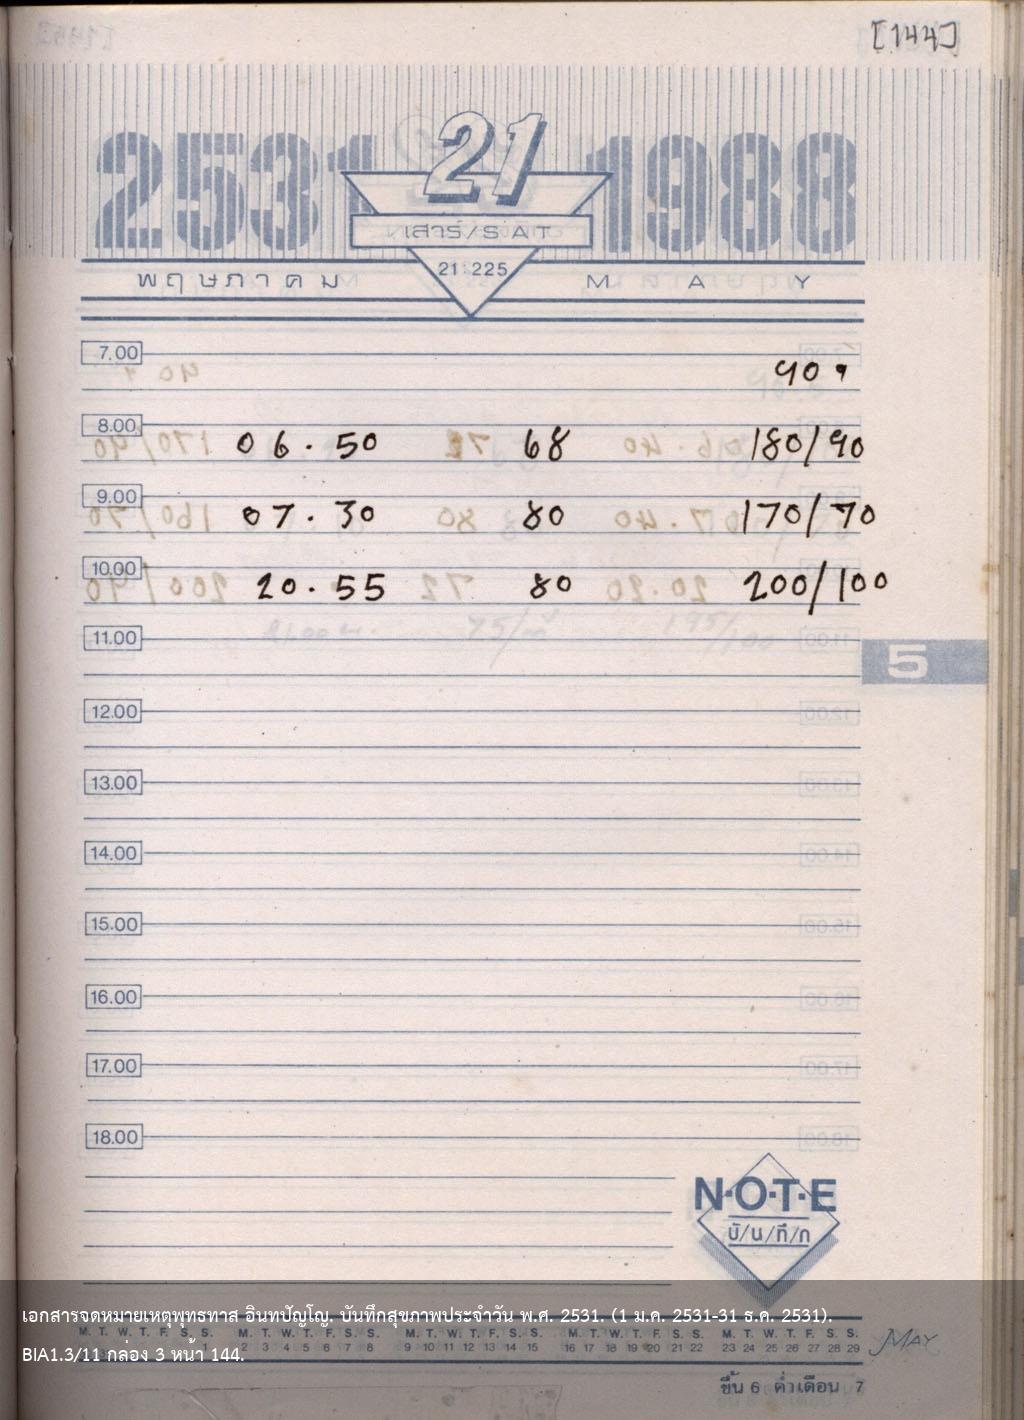 [144]
2531 21 1988
เสาร์/SAT
พฤษภาคม 21 225 MAY
7.00
90.
8.00
06.50 68 180/90
9.00
07.30 80 170/70
10.00
20.55 80 200/100
11.00
5
12.00
13.00
14.00
15.00
16.00
17.00
18.00
N·O·T·E
บั/น/ทึ/ก
เอกสารจดหมายเหตุพุทธทาส อินทปัญโญ. บันทึกสุขภาพประจำวัน พ.ศ. 2531. (1 ม.ค. 2531-31 ธ.ค. 2531).
M. T. W. T. F. S. S. M. T. W. T. F. S. S. M. T. W. T. F. S. S. M. T. W. T. F. S. S. M. T. W. T. F. S. S.
1 2 3 4 5 6 7 8 9 10 11 12 13 14 15 16 17 18 19 20 21 22 23 24 25 26 27 28 29 MAY
BIA1.3/11 กล่อง 3 หน้า 144.
ขึ้น 6 ค่ำ เดือน 7